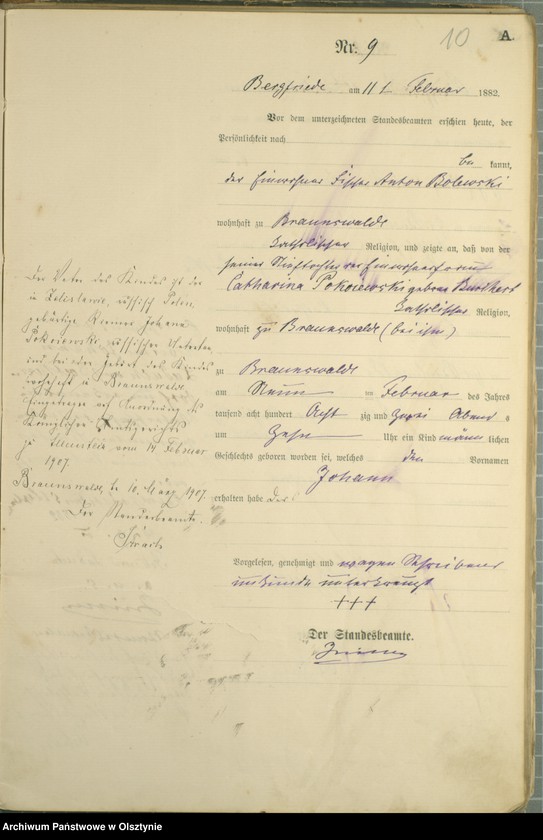 10
A.
Nr. 9
Bergfriede am 11 t Februar 1882.
Vor dem unterzeichneten Standesbeamten erschien heute, der
Persönlichkeit nach
be kannt,
der Einwohner Anton Bolewski
wohnhaft zu Braunswalde
katholischer Religion, und zeigte an, daß von der
seiner
Catharina Pokoiewski geborne
katholischer Religion,
wohnhaft zu Braunswalde (bei ihm)
zu Braunswalde
am Neun ten Februar des Jahres
tausend acht hundert Acht zig und zwei Abend s
um Zehn Uhr ein Kind männ lichen
Geschlechts geboren worden sei, welches den Vornamen
Johann
erhalten habe
Vorgelesen, genehmigt und wegen Schreibens
unkunde unterkreuzt
+++
Der Standesbeamte.
Der Vater des Kindes ist der
in russisch Polen
gebürtige Johann
Pokoiewski, russischer Unterthan
und bei der Geburt des Kindes
in Braunswalde
Eingetragen auf Anordnung des
Königlichen Amtsgerichts
zu Allenstein vom 14 Februar
1907.
Braunswalde, den 10. März 1907.
Der Standesbeamte.
Archiwum Państwowe w Olsztynie